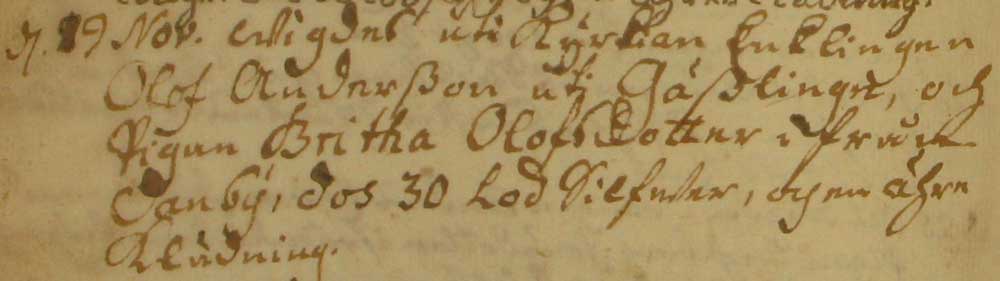 d. 29 Nov. Wigdes uti Kyrkian Enklingen
Olof Anderßon uti Gäßlinge, och
Pigan Britha Olofsdotter i från
Danby, dos 30 Lod Silfwer, och en ähre
Klädning.